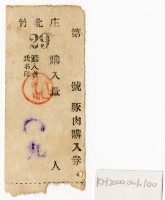 第　　號豚肉購入券
竹北庄
29
購入量
人
購入者
氏名印
KH2000.001.100